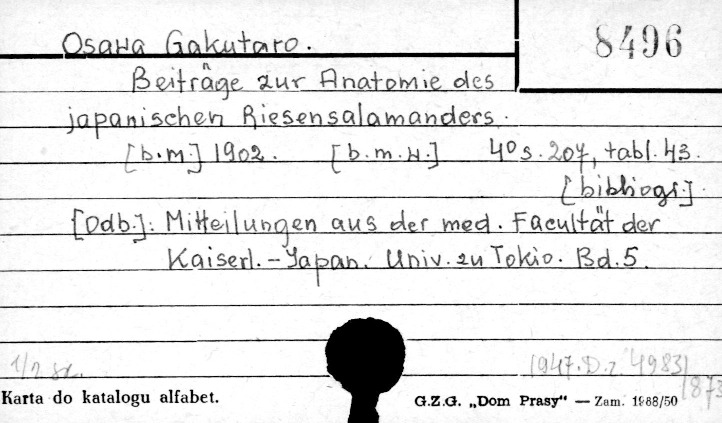 8496
Osawa Gakutaro.
Beiträge zur Anatomie des
japanischen Riesensalamanders.
[b.m.] 1902. [b.m.w.] 4° s. 207, tabl. 43.
[bibliogr.]
[Odb.]: Mitteilungen aus der med. Facultät der
Kaiserl.-Japan. Univ. zu Tokio. Bd. 5.
1/2 sk.
1947.D.z. 4983/
1873
Karta do katalogu alfabet.
G.Z.G. „Dom Prasy“ — Zam. 1988/50